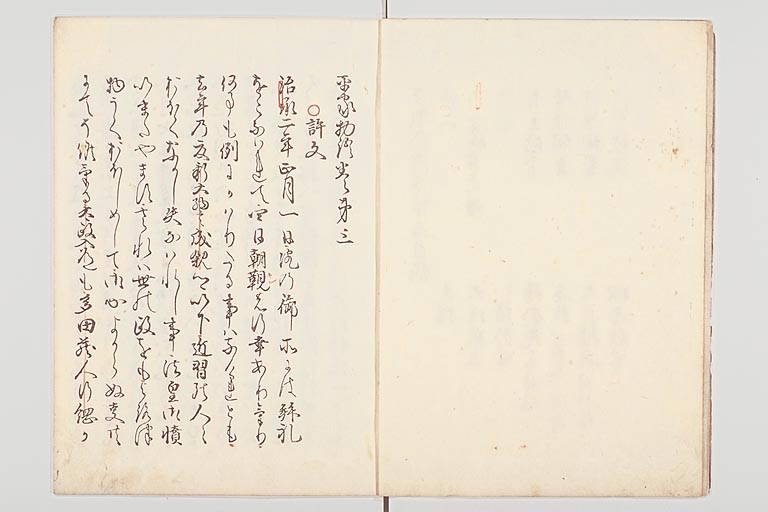 平家物語巻第三
○許文
治承二年正月一日院の御所には拝礼
をこなはれて四日朝覲の行幸ありけり
何事も例にかはりたる事はなけれとも
去年の夏新大納言成親卿以下近習の人々
おほくなかし失なはれし事法皇御憤
いまたやます されは世の政をも
物うくおほしめして御心よからぬ事共
にてそ候ける 入道も多田蔵人行綱か